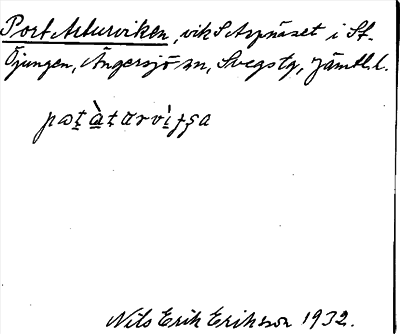 Port Arturviken, vik S Aspnäset i St.
Öjungen, Ängersjö sn, Svegs tg, Jämtl. l.
pɷt̠à̠t̠arvìƒʂa
Nils Erik Erikson 1932.